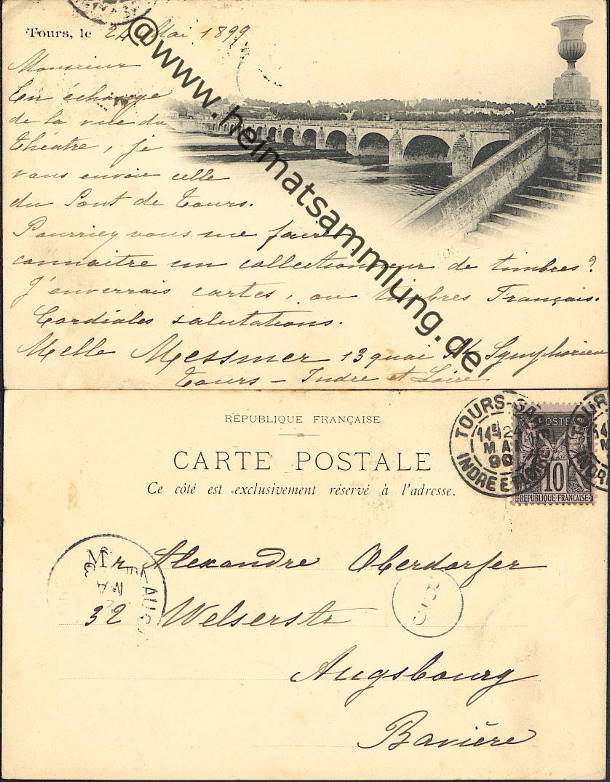 Tours, le 24 Mai 1899
Monsieur
En échange
de la vue du
théâtre, je
vous envoie celle
du Pont de Tours.
Pourriez vous me faire
connaître un collectionneur de timbres?
J'enverrais cartes, ou timbres Français.
Cordiales salutations.
Melle Messmer 13 quai St Symphorien
Tours – Indre et Loire
@www.heimatsammlung.de
RÉPUBLIQUE FRANÇAISE
CARTE POSTALE
Ce côté est exclusivement réservé à l'adresse.
TOURS-GA
MAI
99
INDRE ET
POSTE
10
REPUBLIQUE FRANÇAISE
Mr Alexandre Oberdorfer
32 Welserstr
Augsbourg
Bavière
AUG
MA